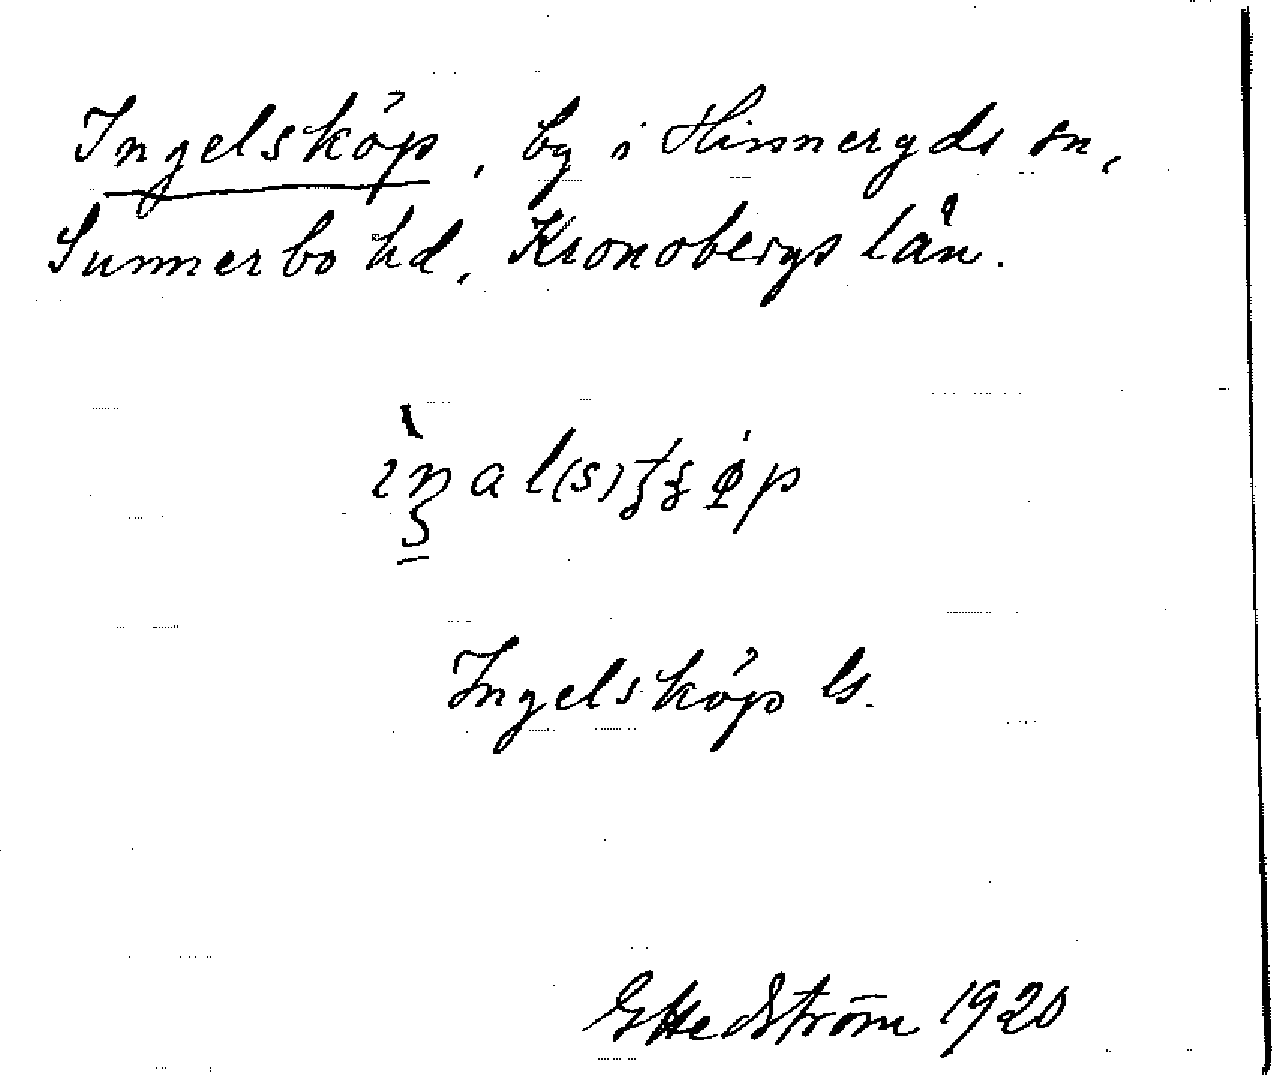 Ingelsköp, by i Hinneryds sn,
Sunnerbo hd, Kronobergs län.
Ingelsköp ls.
G Hedström 1920